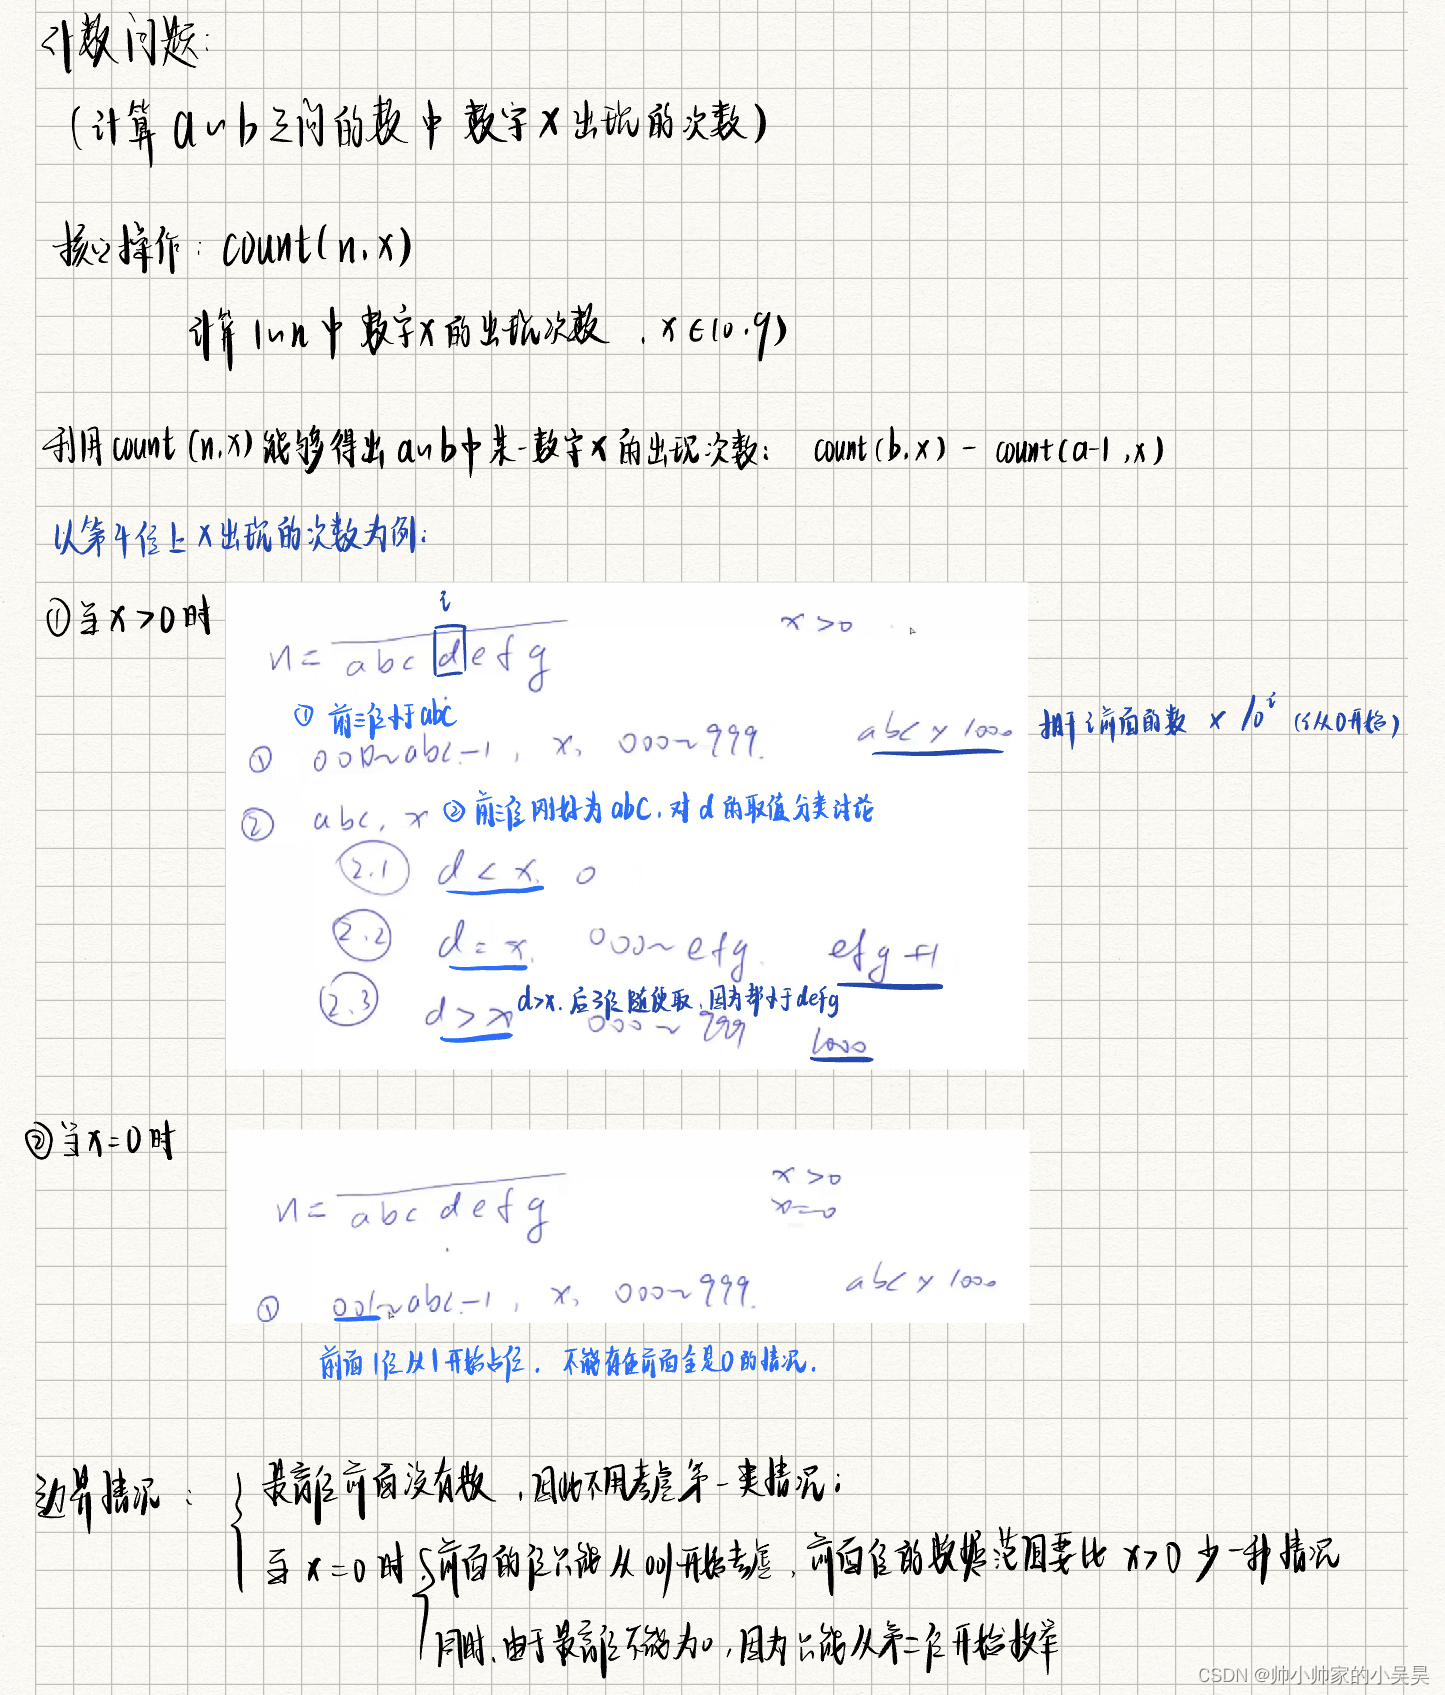 计数问题:
(计算a~b之间的数中 数字x出现的次数)
核心操作: count(n,x)
计算1~n中 数字x的出现次数 , x∈(0,9)
利用count(n,x)能够得出a~b中某一数字x的出现次数: count(b,x) - count(a-1,x)
以第4位上x出现的次数为例:
①当x>0时
i
n= abc d efg
x>0
① 前三位小于abc
① 000~abc-1, x, 000~999. abc × 1000
相当于i前面的数 × 10^i (i从0开始)
② abc, x ② 前三位刚好为abc, 对d的取值分类讨论
2.1 d < x. 0
2.2 d = x. 000~efg. efg+1
2.3 d > x d>x. 后3位随便取, 因为都小于defg
000~999 1000
②当x=0时
n= abc d efg
x>0
x=0
① 001~abc-1, x, 000~999. abc × 1000
前面1位从1开始占位. 不能有在前面全是0的情况.
边界情况:
最高位前面没有数, 因此不用考虑第一类情况;
当x=0时 前面的位只能从001开始考虑, 前面位的数据范围要比x>0少一种情况
同时, 由于最高位不能为0, 因为只能从第二位开始枚举
CSDN @帅小帅家的小吴昊